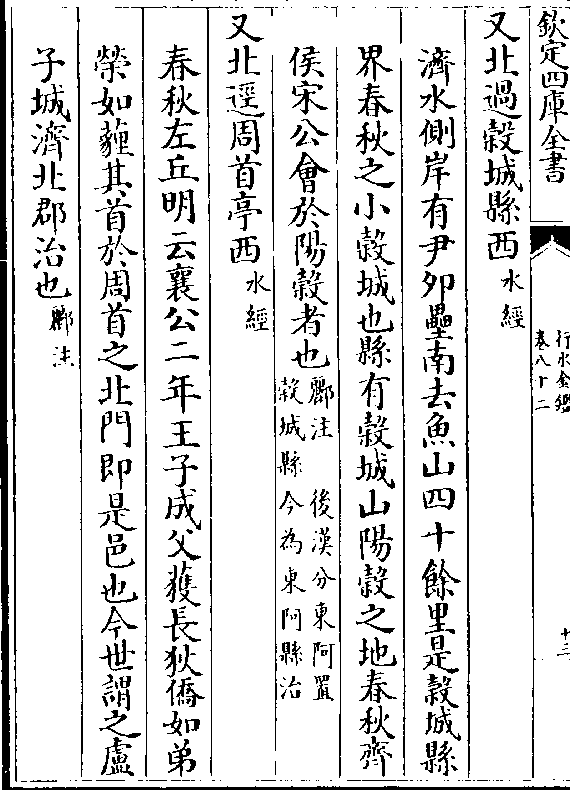 欽定四庫全書
行水金鑑
卷八十二
十三
又北過穀城縣西水經
濟水側岸有尹卯壘南去魚山四十餘里是穀城縣
界春秋之小穀城也縣有穀城山陽穀之地春秋齊
侯宋公會於陽穀者也酈注 後漢分東阿置
穀城縣今為東阿縣治
又北逕周首亭西水經
春秋左丘明云襄公二年王子成父獲長狄僑如弟
榮如薶其首於周首之北門即是邑也今世謂之盧
子城濟北郡治也酈注